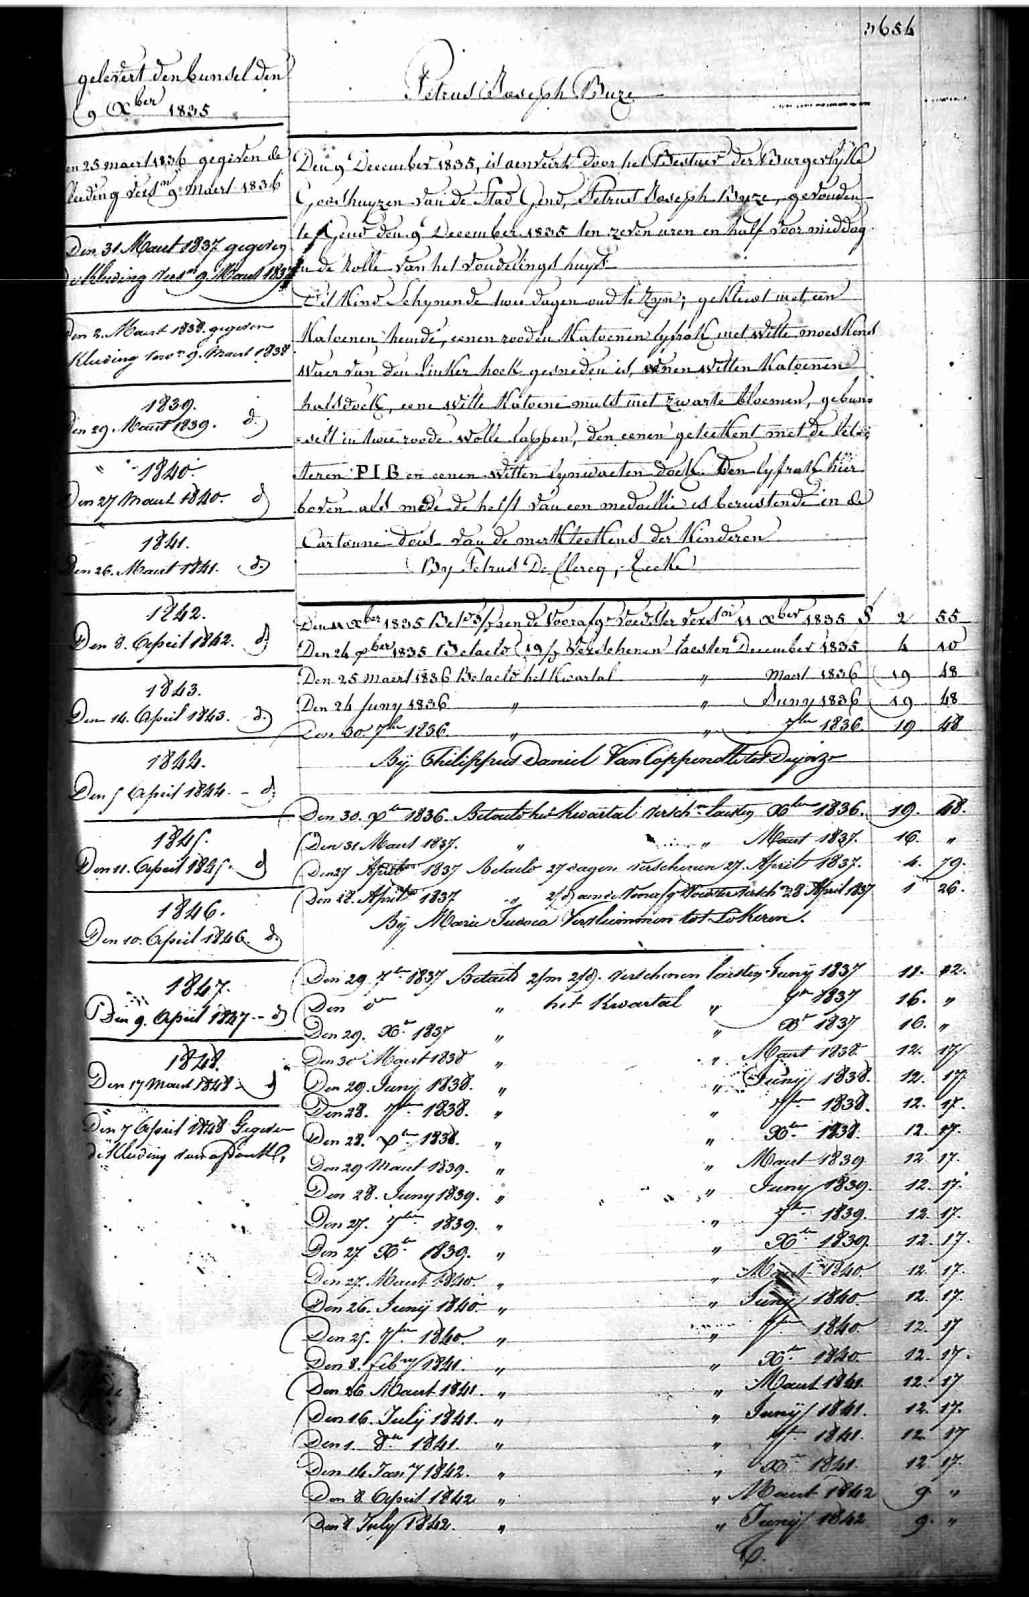 3654
gelevert den bunsel den
9 Xber 1835
Petrus Joseph Buze
en 25 maert 1836 gegeven de
kleeding vers.n 9 Maert 1836
Den 31 Maert 1837 gegeven
de kleeding vers.n 9 Maert 1837
Den 2. Maert 1838. gegeven
Kleeding 9. Maert 1838
1839.
Den 29. Maert 1839. d.
" " 1840.
Den 27 Maert 1840. d
1841.
Den 26. Maert 1841. d.
1842.
Den 8. April 1842. d
1843.
Den 14. April 1843. d.
1844.
Den 5 April 1844. - d.
1845.
Den 11. April 1845. d
1846.
Den 10. April 1846. d.
1847.
Den 9. April 1847. - d
1848.
Den 17 Maert 1848 - d
Den 7 April 1848 Gegeven
de Kleeding
Den 9 December 1835, is aenveirt door het Bestuer der Burgerlyke
Godshuyzen van de Stad Gend, Petrus Joseph Buze, gevonden
te Gend den 9 December 1835 ten zeven uren en half voor middag
in de Rolle van het vondelings huys.
Dit Kind Schynende twee dagen oud te Zyn; gekleed met, een
Katoenen hemde, eenen rooden Katoenen lyfrok met witte moeskens
waer van den Linker hoek gesneden is, eenen witten Katoenen
halsdoek, eene witte Katoene muts met zwarte bloemen, gebun-
selt in twee roode wolle lappen, den eenen geteekent met de lett-
teren P I B en eenen witten lynwaeten doek. Den lyfrok hier
boven als mede de helft van een medaillie is berustende in de
Cartonne doos van de merkteekens der Kinderen
By Petrus De Clercq, Eecke
Den 11 Xber 1835 en de Voorafg.e 11 Xber 1835 § 2 55
Den 24 Xber 1835 Betaelt 19/ Verschenen laesten December 1835 4 10
Den 25 maert 1836 Betaelt het Kwartal " Maert 1836 19 48
Den 24 Juny 1836 " " Juny 1836 19 48
Den 30 7ber 1836. " " 7ber 1836. 19 48
Bij Philippus Daniel Van Coppenolle tot Deijnze
Den 30. Xber 1836. Betaelt het Kwartal versch.n laesten Xber 1836. 19. 48.
Den 31 Maert 1837. " " Maert 1837. 16. "
Den 27 April 1837 Betaelt 27 dagen verschenen 27. April 1837. 4. 79.
Den 28. April 1837 " 2/ aen de Voorafg. Voedster versch.n 28 April 1837 1 26.
Bij Marie Verslummen tot Lokeren.
Den 29. 7ber 1837 Betaelt 2/m 2/d. verschenen laesten Juny 1837 11. 02.
Den d.en " het Kwartal " 7ber 1837 16. "
Den 29. Xber 1837 " " Xber 1837 16. "
Den 30 Maert 1838 " " Maert 1838. 12. 17
Den 29. Juny 1838. " " Juny 1838. 12. 17.
Den 28. 7ber 1838. " " 7ber 1838. 12. 17.
Den 28. Xber 1838. " " Xber 1838. 12. 17.
Den 29 Maert 1839. " " Maert 1839 12 17.
Den 28. Juny 1839. " " Juny 1839. 12. 17.
Den 27. 7ber 1839. " " 7ber 1839. 12. 17.
Den 27 Xber 1839. " " Xber 1839. 12. 17.
Den 27. Maert 1840. " " Maert 1840. 12 17.
Den 26. Juny 1840. " " Juny 1840. 12. 17.
Den 25. 7ber 1840. " " 7ber 1840. 12. 17
Den 8. feb.ry 1841. " " Xber 1840. 12. 17.
Den 26. Maert 1841. " " Maert 1841. 12. 17
Den 16. July 1841. " " Juny 1841. 12. 17.
Den 1. 8ber 1841. " " 7ber 1841. 12 17
Den 14 Jan.y 1842. " " Xber 1841. 12 17.
Den 8. April 1842 " " Maert 1842 9 "
Den 8 July 1842. " " Juny 1842 9. "